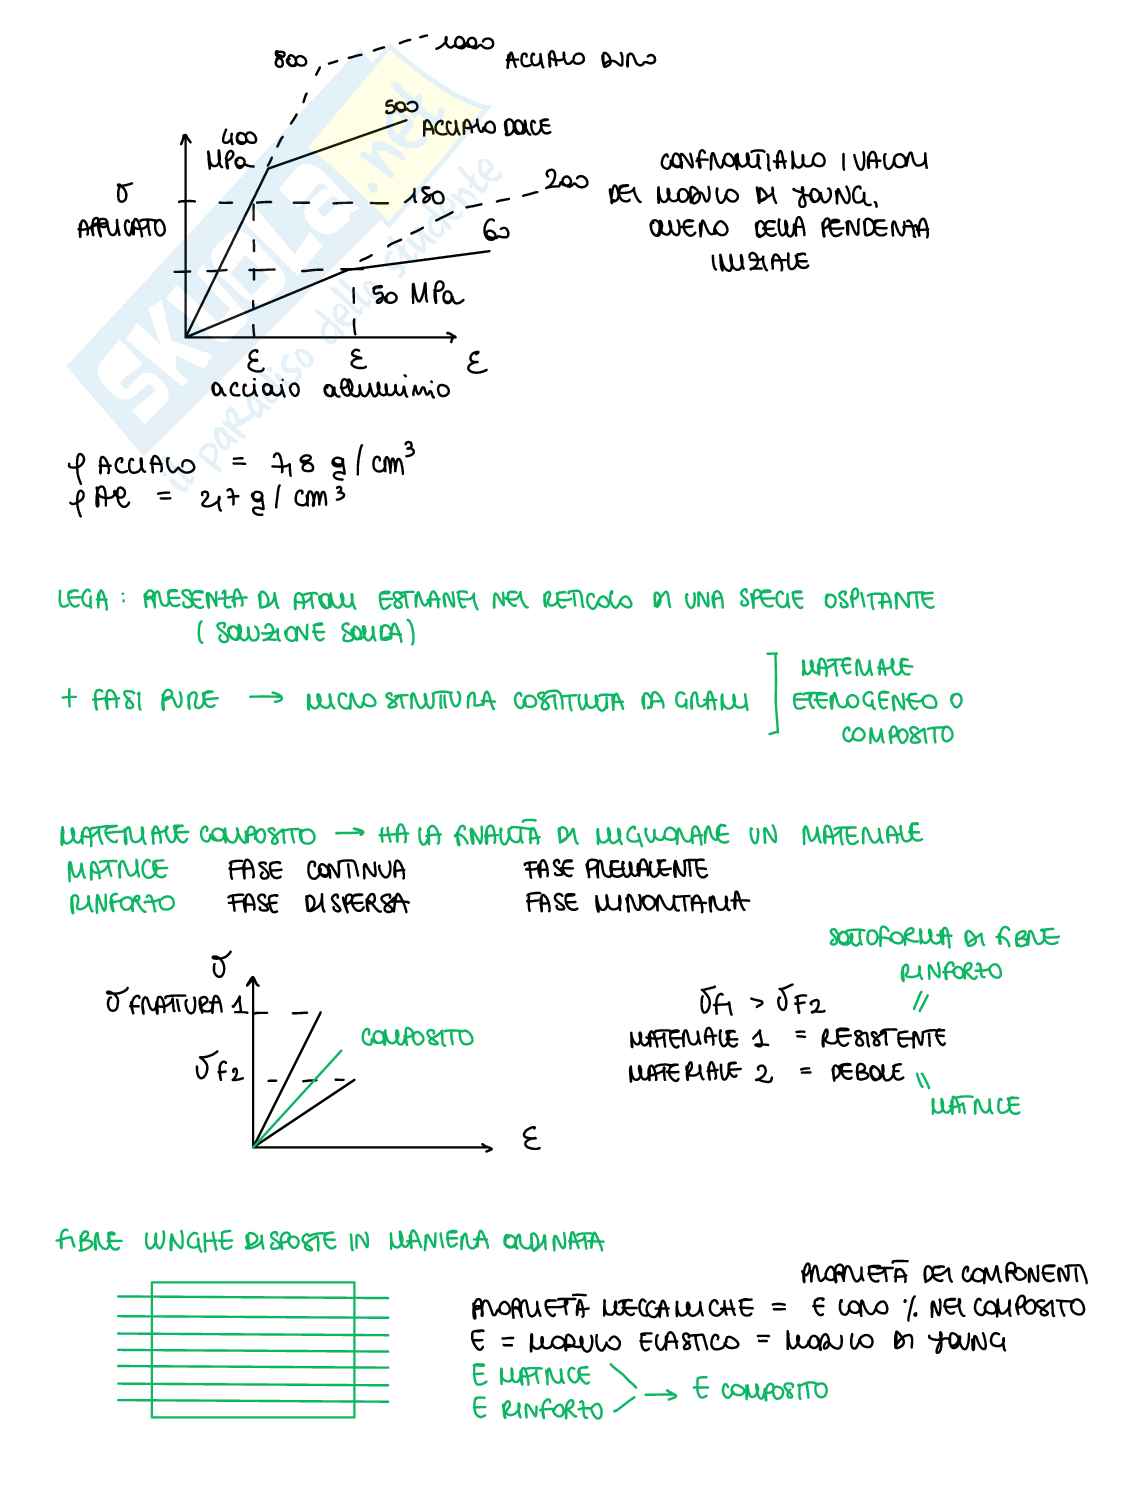 800
1000
ACCIAIO DURO
400
MPa
500
ACCIAIO DOLCE
σ
APPLICATO
150
200
60
50 MPa
ε
acciaio
ε
alluminio
ε
CONFRONTIAMO I VALORI
DEL MODULO DI YOUNG,
OVVERO DELLA PENDENZA
INIZIALE
SKUOLA.net
il paradiso dello studente
ρ ACCIAIO = 7,8 g/cm³
ρ Al = 2,7 g/cm³
LEGA : PRESENZA DI ATOMI ESTRANEI NEL RETICOLO DI UNA SPECIE OSPITANTE
(SOLUZIONE SOLIDA)
+ FASI PURE → MICROSTRUTTURA COSTITUITA DA GRANI
MATERIALE
ETEROGENEO O
COMPOSITO
MATERIALE COMPOSITO → HA LA FINALITÀ DI MIGLIORARE UN MATERIALE
MATRICE FASE CONTINUA FASE PREVALENTE
RINFORZO FASE DISPERSA FASE MINORITARIA
σ
σ FRATTURA 1
σf2
COMPOSITO
ε
SOTTOFORMA DI FIBRE
RINFORZO
//
σf1 > σF2
MATERIALE 1 = RESISTENTE
MATERIALE 2 = DEBOLE
\\
MATRICE
FIBRE LUNGHE DISPOSTE IN MANIERA ORDINATA
PROPRIETÀ DEI COMPONENTI
PROPRIETÀ MECCANICHE = E LORO % NEL COMPOSITO
E = MODULO ELASTICO = MODULO DI YOUNG
E MATRICE
E RINFORZO
→ E COMPOSITO